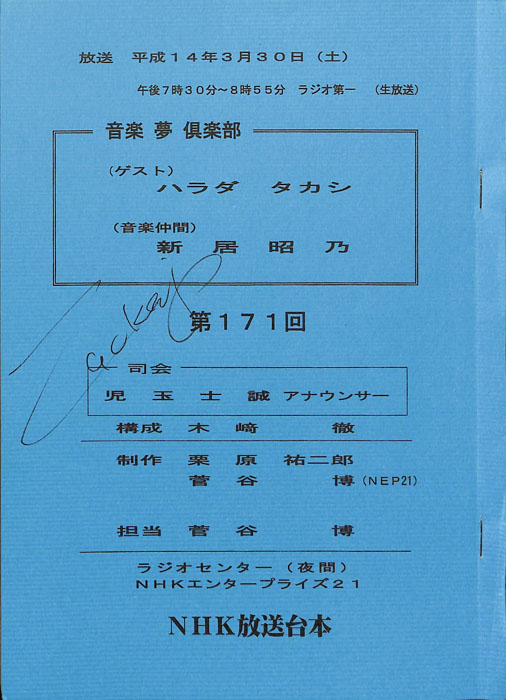 放送 平成14年3月30日(土)
午後7時30分~8時55分 ラジオ第一 (生放送)
音楽 夢 倶楽部
(ゲスト)
ハラダ タカシ
(音楽仲間)
新居昭乃
第171回
司会
児玉士誠 アナウンサー
構成 木﨑 徹
制作 栗原 祐二郎
菅谷 博(NEP21)
担当 菅谷 博
ラジオセンター(夜間)
NHKエンタープライズ21
NHK放送台本